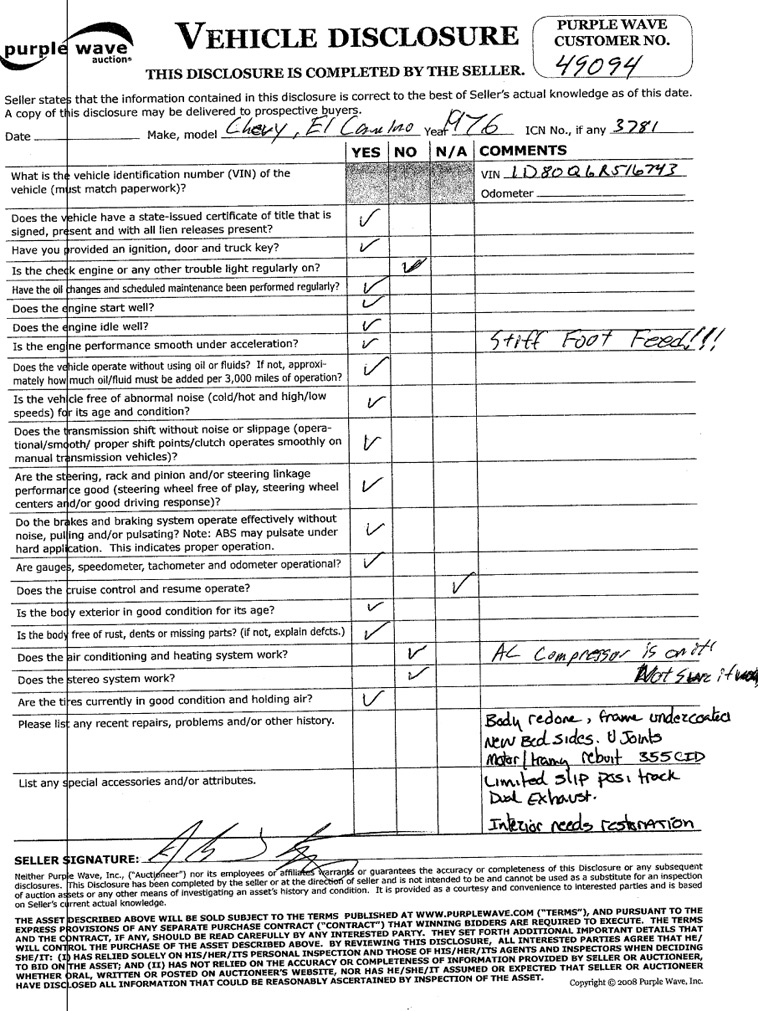 purple wave
auction®
VEHICLE DISCLOSURE
THIS DISCLOSURE IS COMPLETED BY THE SELLER.
PURPLE WAVE
CUSTOMER NO.
49094
Seller states that the information contained in this disclosure is correct to the best of Seller's actual knowledge as of this date.
A copy of this disclosure may be delivered to prospective buyers.
Date Make, model Chevy, El Camino Year 1976 ICN No., if any 3781
YES NO N/A COMMENTS
What is the vehicle identification number (VIN) of the
vehicle (must match paperwork)?
VIN 1D80Q6R516743
Odometer
Does the vehicle have a state-issued certificate of title that is
signed, present and with all lien releases present?
Have you provided an ignition, door and truck key?
Is the check engine or any other trouble light regularly on?
Have the oil changes and scheduled maintenance been performed regularly?
Does the engine start well?
Does the engine idle well?
Is the engine performance smooth under acceleration? Stiff Foot Feed!!!
Does the vehicle operate without using oil or fluids? If not, approxi-
mately how much oil/fluid must be added per 3,000 miles of operation?
Is the vehicle free of abnormal noise (cold/hot and high/low
speeds) for its age and condition?
Does the transmission shift without noise or slippage (opera-
tional/smooth/ proper shift points/clutch operates smoothly on
manual transmission vehicles)?
Are the steering, rack and pinion and/or steering linkage
performance good (steering wheel free of play, steering wheel
centers and/or good driving response)?
Do the brakes and braking system operate effectively without
noise, pulling and/or pulsating? Note: ABS may pulsate under
hard application. This indicates proper operation.
Are gauges, speedometer, tachometer and odometer operational?
Does the cruise control and resume operate?
Is the body exterior in good condition for its age?
Is the body free of rust, dents or missing parts? (if not, explain defcts.)
Does the air conditioning and heating system work? AC Compressor is on it!
Does the stereo system work? Not sure it
Are the tires currently in good condition and holding air?
Please list any recent repairs, problems and/or other history.
Body redone, frame undercoated
New Bed sides. U Joints
Motor/tranny rebuit 355CID
List any special accessories and/or attributes.
Limited slip possi track
Dual Exhaust.
Interior needs restoration
SELLER SIGNATURE:
Neither Purple Wave, Inc., ("Auctioneer") nor its employees or affiliates warrants or guarantees the accuracy or completeness of this Disclosure or any subsequent
disclosures. This Disclosure has been completed by the seller or at the direction of seller and is not intended to and cannot be used as a substitute for an inspection
of auction assets or any other means of investigating an asset's history and condition. It is provided as a courtesy and convenience to interested parties and is based
on Seller's current actual knowledge.
THE ASSET DESCRIBED ABOVE WILL BE SOLD SUBJECT TO THE TERMS PUBLISHED AT WWW.PURPLEWAVE.COM ("TERMS"), AND PURSUANT TO THE
EXPRESS PROVISIONS OF ANY SEPARATE PURCHASE CONTRACT ("CONTRACT") THAT WINNING BIDDERS ARE REQUIRED TO EXECUTE. THE TERMS
AND THE CONTRACT, IF ANY, SHOULD BE READ CAREFULLY BY ANY INTERESTED PARTY. THEY SET FORTH ADDITIONAL IMPORTANT DETAILS THAT
WILL CONTROL THE PURCHASE OF THE ASSET DESCRIBED ABOVE. BY REVIEWING THIS DISCLOSURE, ALL INTERESTED PARTIES AGREE THAT HE/
SHE/IT: (I) HAS RELIED SOLELY ON HIS/HER/ITS PERSONAL INSPECTION AND THOSE OF HIS/HER/ITS AGENTS AND INSPECTORS WHEN DECIDING
TO BID ON THE ASSET; AND (II) HAS NOT RELIED ON THE ACCURACY OR COMPLETENESS OF INFORMATION PROVIDED BY SELLER OR AUCTIONEER,
WHETHER ORAL, WRITTEN OR POSTED ON AUCTIONEER'S WEBSITE, NOR HAS HE/SHE/IT ASSUMED OR EXPECTED THAT SELLER OR AUCTIONEER
HAVE DISCLOSED ALL INFORMATION THAT COULD BE REASONABLY ASCERTAINED BY INSPECTION OF THE ASSET.
Copyright © 2008 Purple Wave, Inc.